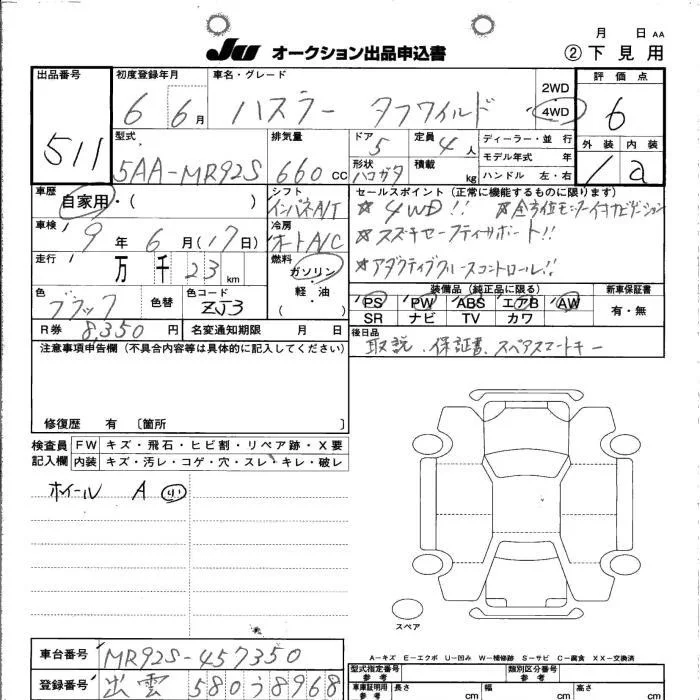 月 日 AA
JU オークション出品申込書 ②下見用
出品番号 511
初度登録年月 6 6月
車名・グレード ハスラー タフワイルド
2WD
4WD
評価点 6
型式 5AA-MR92S
排気量 660 CC
ドア 5
形状 ハコガタ
定員 4人
積載 kg
ディーラー・並行
モデル年式 年
ハンドル 左・右
外装 1
内装 a
車歴 自家用・( )
シフト インパネA/T
セールスポイント (正常に機能するものに限ります)
☆4WD!! ☆全方位モニター付ナビゲーション
☆スズキセーフティサポート!!
☆アダクティブクルーズコントロール!!
車検 9年6月(17日)
冷房 オートA/C
走行 万千23km
燃料 ガソリン・軽・油・( )
色 ブラック
色替
色コード ZJ3
装備品 (純正品に限る)
PS PW ABS エアB AW
SR ナビ TV カワ
新車保証書 有・無
R券 8,350円
名変通知期限 月 日
後日品
取説、保証書、スペアスマートキー
注意事項申告欄 (不具合内容等は具体的に記入してください)
修復歴 有 〔箇所 〕
検査員記入欄
FW キズ・飛石・ヒビ割・リペア跡・X要
内装 キズ・汚レ・コゲ・穴・スレ・キレ・破レ
ホイール A
スペア
A−キズ E−エクボ U−凹み W−補修跡 S−サビ C−腐食 XX−交換済
車台番号 MR92S-457350
登録番号 出雲 580う8968
型式指定番号 参考
類別区分番号 参考
車庫証明用参考 長さ cm 幅 cm 高さ cm